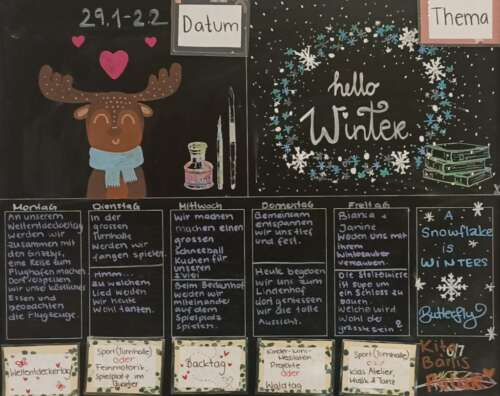 29.1-2.2
Datum
Thema
hello
Winter
Montag
Dienstag
Mittwoch
Donnerstag
Freitag
An unserem
Weltentdeckertag
werden wir
zusammen mit
den
eine Reise zum
Flughafen machen.
Dort verspeisen
wir unser köstliches
Essen und
beobachten
die Flugzeuge
In der
grossen
Turnhalle
werden wir
fangen spielen.
Hmm...
zu welchem
Lied werden
wir heute
wohl tanzen.
Wir machen
machen einen
grossen
Schneeball
Kuchen für
unseren
Zvieri
Beim Beckenhof
werden wir
miteinander
auf dem
Spielplatz
spielen.
Gemeinsam
entspannen
wir uns tief
und fest.
Heute begeben
wir uns zum
Lindenhof
dort geniessen
wir die tolle
Aussicht.
Bianca +
Janine
werden uns mit
ihrem
Winterzauber
verzaubern.
Die Steibüwiese
ist supe um
ein Schloss zu
bauen.
Welche wird
wohl die
grösste sein?
A
Snowflake
is
WINTERS
Butterfly
Weltentdeckertag
Sport (Turnhalle)
oder
Feinmotorik,
Spielplatz im
Quartier
Backtag
Kinder-Yoga
Meditation
Projekte
oder
Waldtag
Sport (Turnhalle)
oder
Kias Atelier,
Musik & Tanz
Kita
Barlis